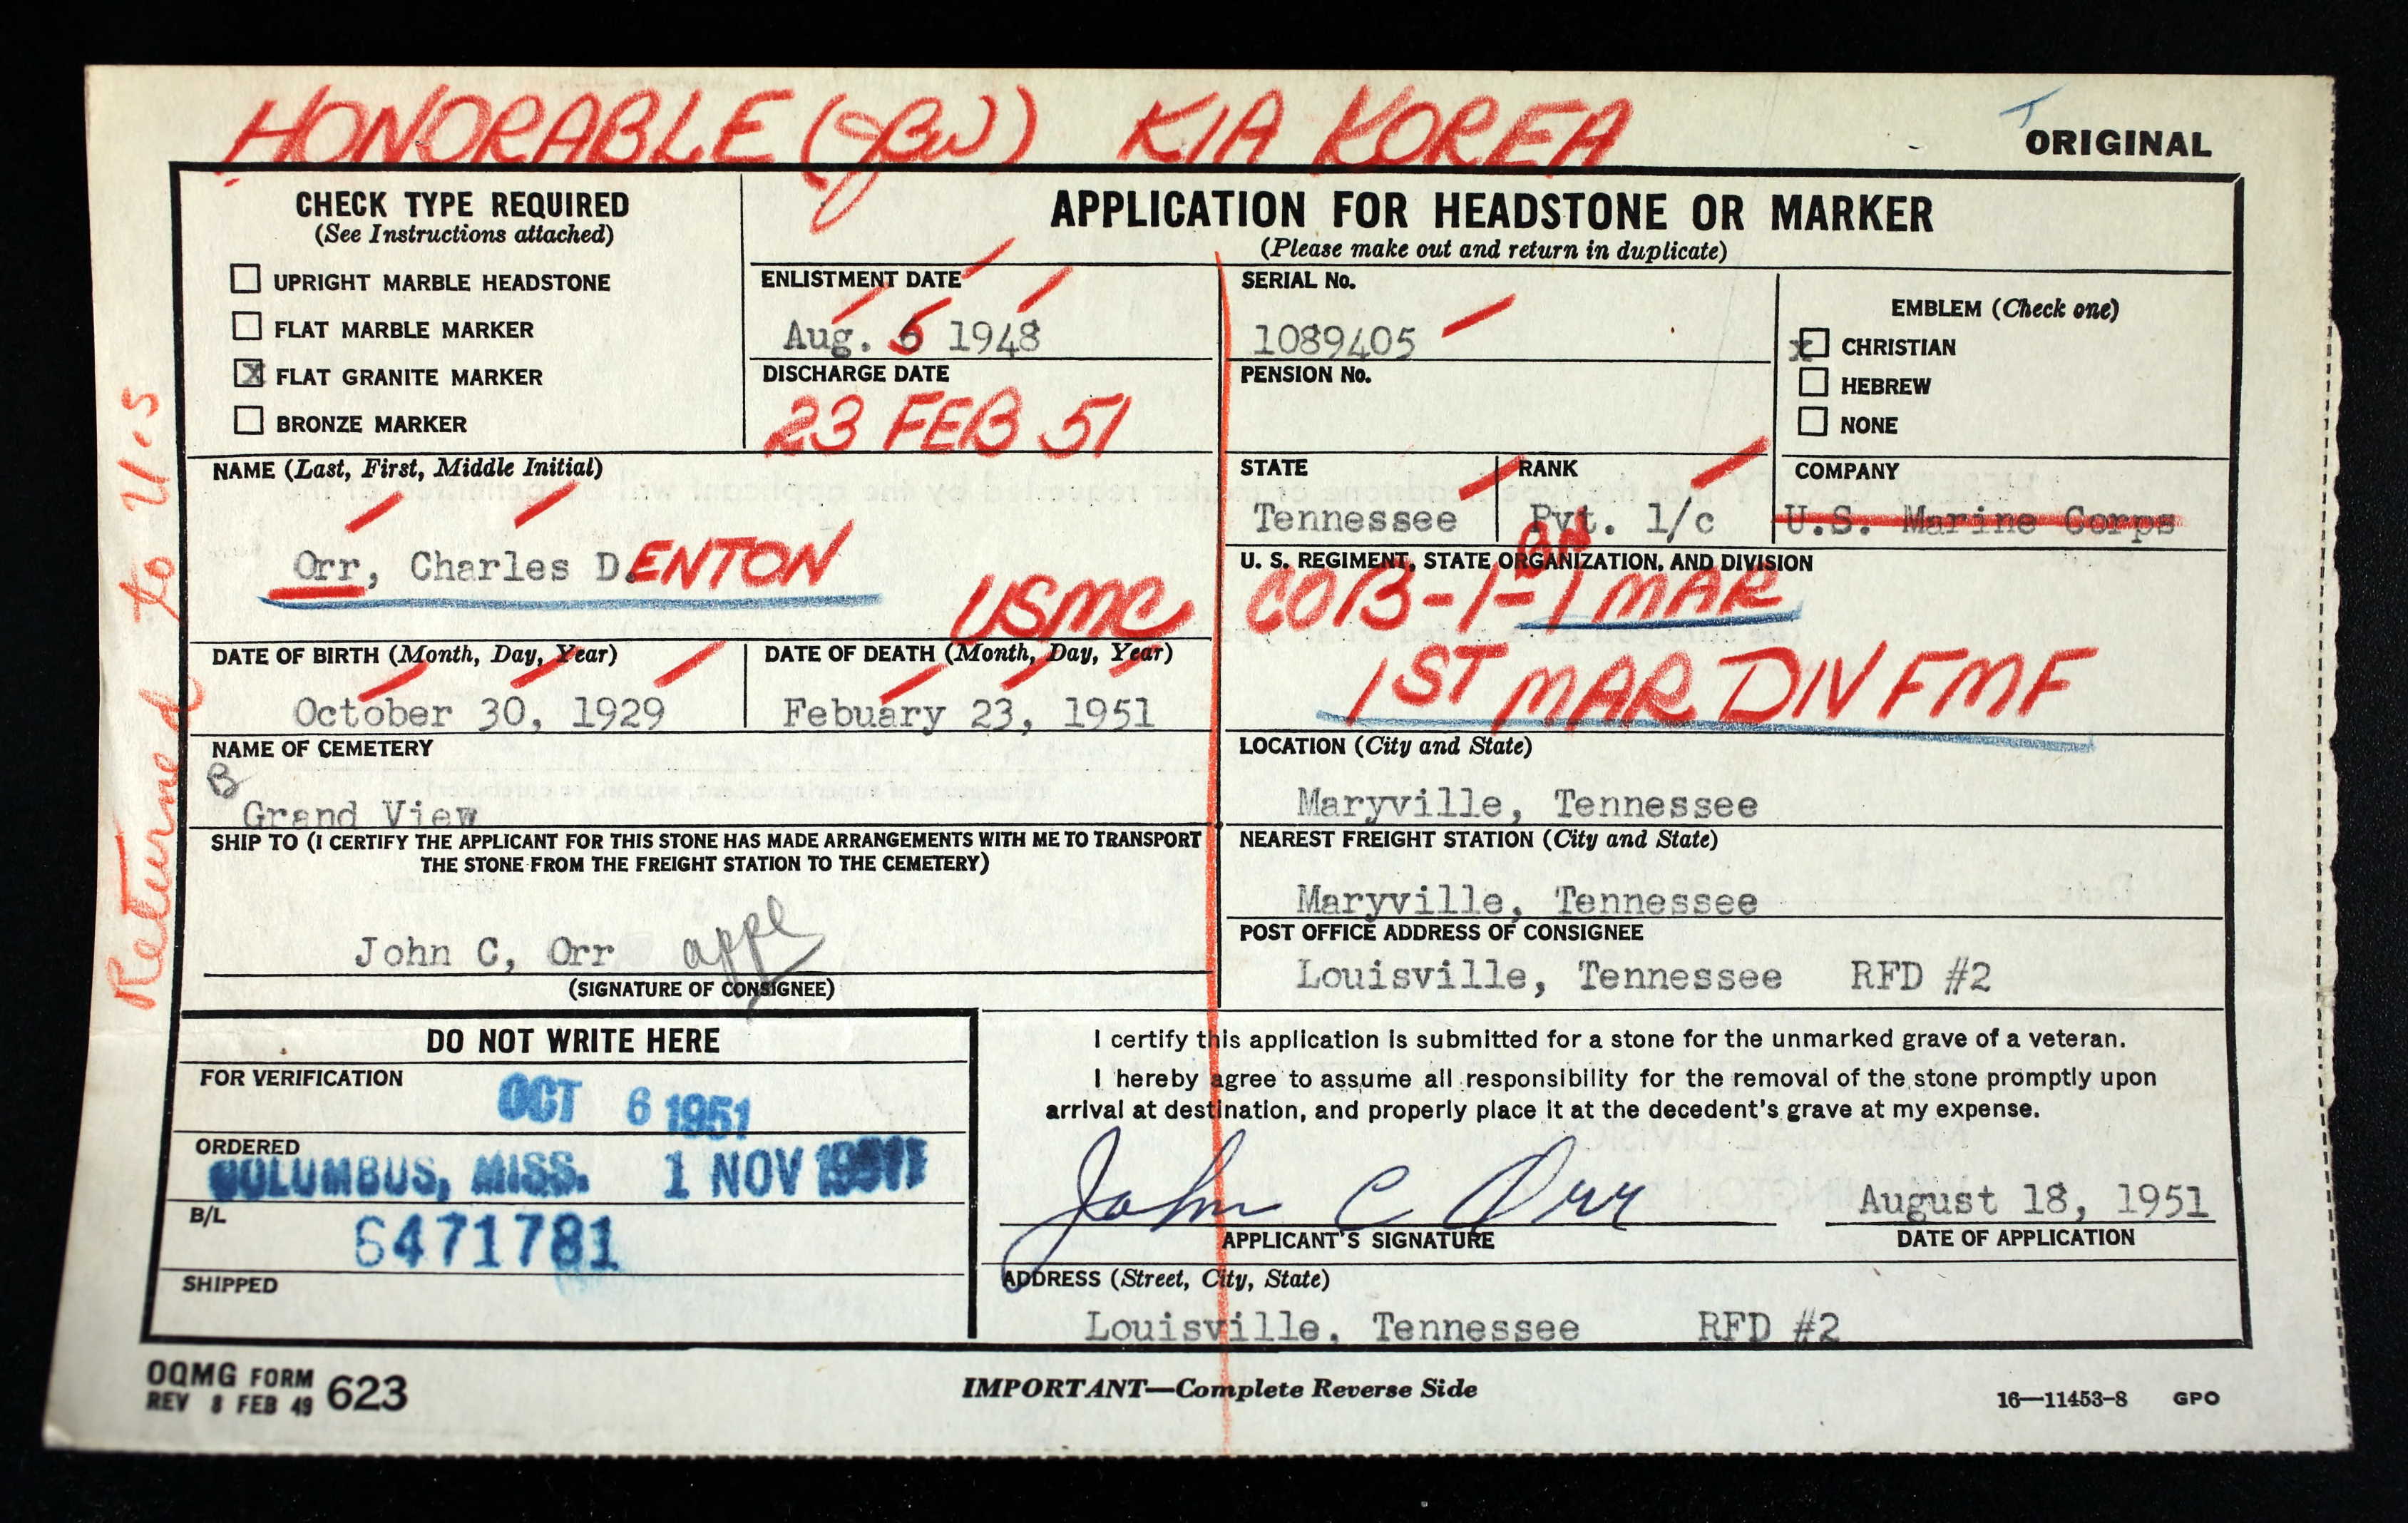 HONORABLE (JBW) KIA KOREA
ORIGINAL
CHECK TYPE REQUIRED
(See Instructions attached)
UPRIGHT MARBLE HEADSTONE
FLAT MARBLE MARKER
X FLAT GRANITE MARKER
BRONZE MARKER
APPLICATION FOR HEADSTONE OR MARKER
(Please make out and return in duplicate)
ENLISTMENT DATE
Aug. 6 1948
DISCHARGE DATE
23 FEB 51
SERIAL No.
1089405
PENSION No.
EMBLEM (Check one)
x CHRISTIAN
HEBREW
NONE
NAME (Last, First, Middle Initial)
Orr, Charles D.ENTON
USMC
STATE
Tennessee
RANK
Pvt. 1/c
COMPANY
U.S. Marine Corps
U. S. REGIMENT, STATE ORGANIZATION, AND DIVISION
BN
CO B-1-1 MAR
1ST MAR DIV FMF
DATE OF BIRTH (Month, Day, Year)
October 30, 1929
DATE OF DEATH (Month, Day, Year)
Febuary 23, 1951
NAME OF CEMETERY
B
Grand View
LOCATION (City and State)
Maryville, Tennessee
SHIP TO (I CERTIFY THE APPLICANT FOR THIS STONE HAS MADE ARRANGEMENTS WITH ME TO TRANSPORT
THE STONE FROM THE FREIGHT STATION TO THE CEMETERY)
John C, Orr appl
(SIGNATURE OF CONSIGNEE)
NEAREST FREIGHT STATION (City and State)
Maryville, Tennessee
POST OFFICE ADDRESS OF CONSIGNEE
Louisville, Tennessee RFD #2
Returned to U.S
DO NOT WRITE HERE
FOR VERIFICATION
OCT 6 1951
ORDERED
COLUMBUS, MISS. 1 NOV 1951
B/L
6471781
SHIPPED
I certify this application is submitted for a stone for the unmarked grave of a veteran.
I hereby agree to assume all responsibility for the removal of the stone promptly upon
arrival at destination, and properly place it at the decedent's grave at my expense.
John C Orr
APPLICANT'S SIGNATURE
August 18, 1951
DATE OF APPLICATION
ADDRESS (Street, City, State)
Louisville, Tennessee RFD #2
OQMG FORM 623
REV 8 FEB 49
IMPORTANT—Complete Reverse Side
16—11453-8 GPO